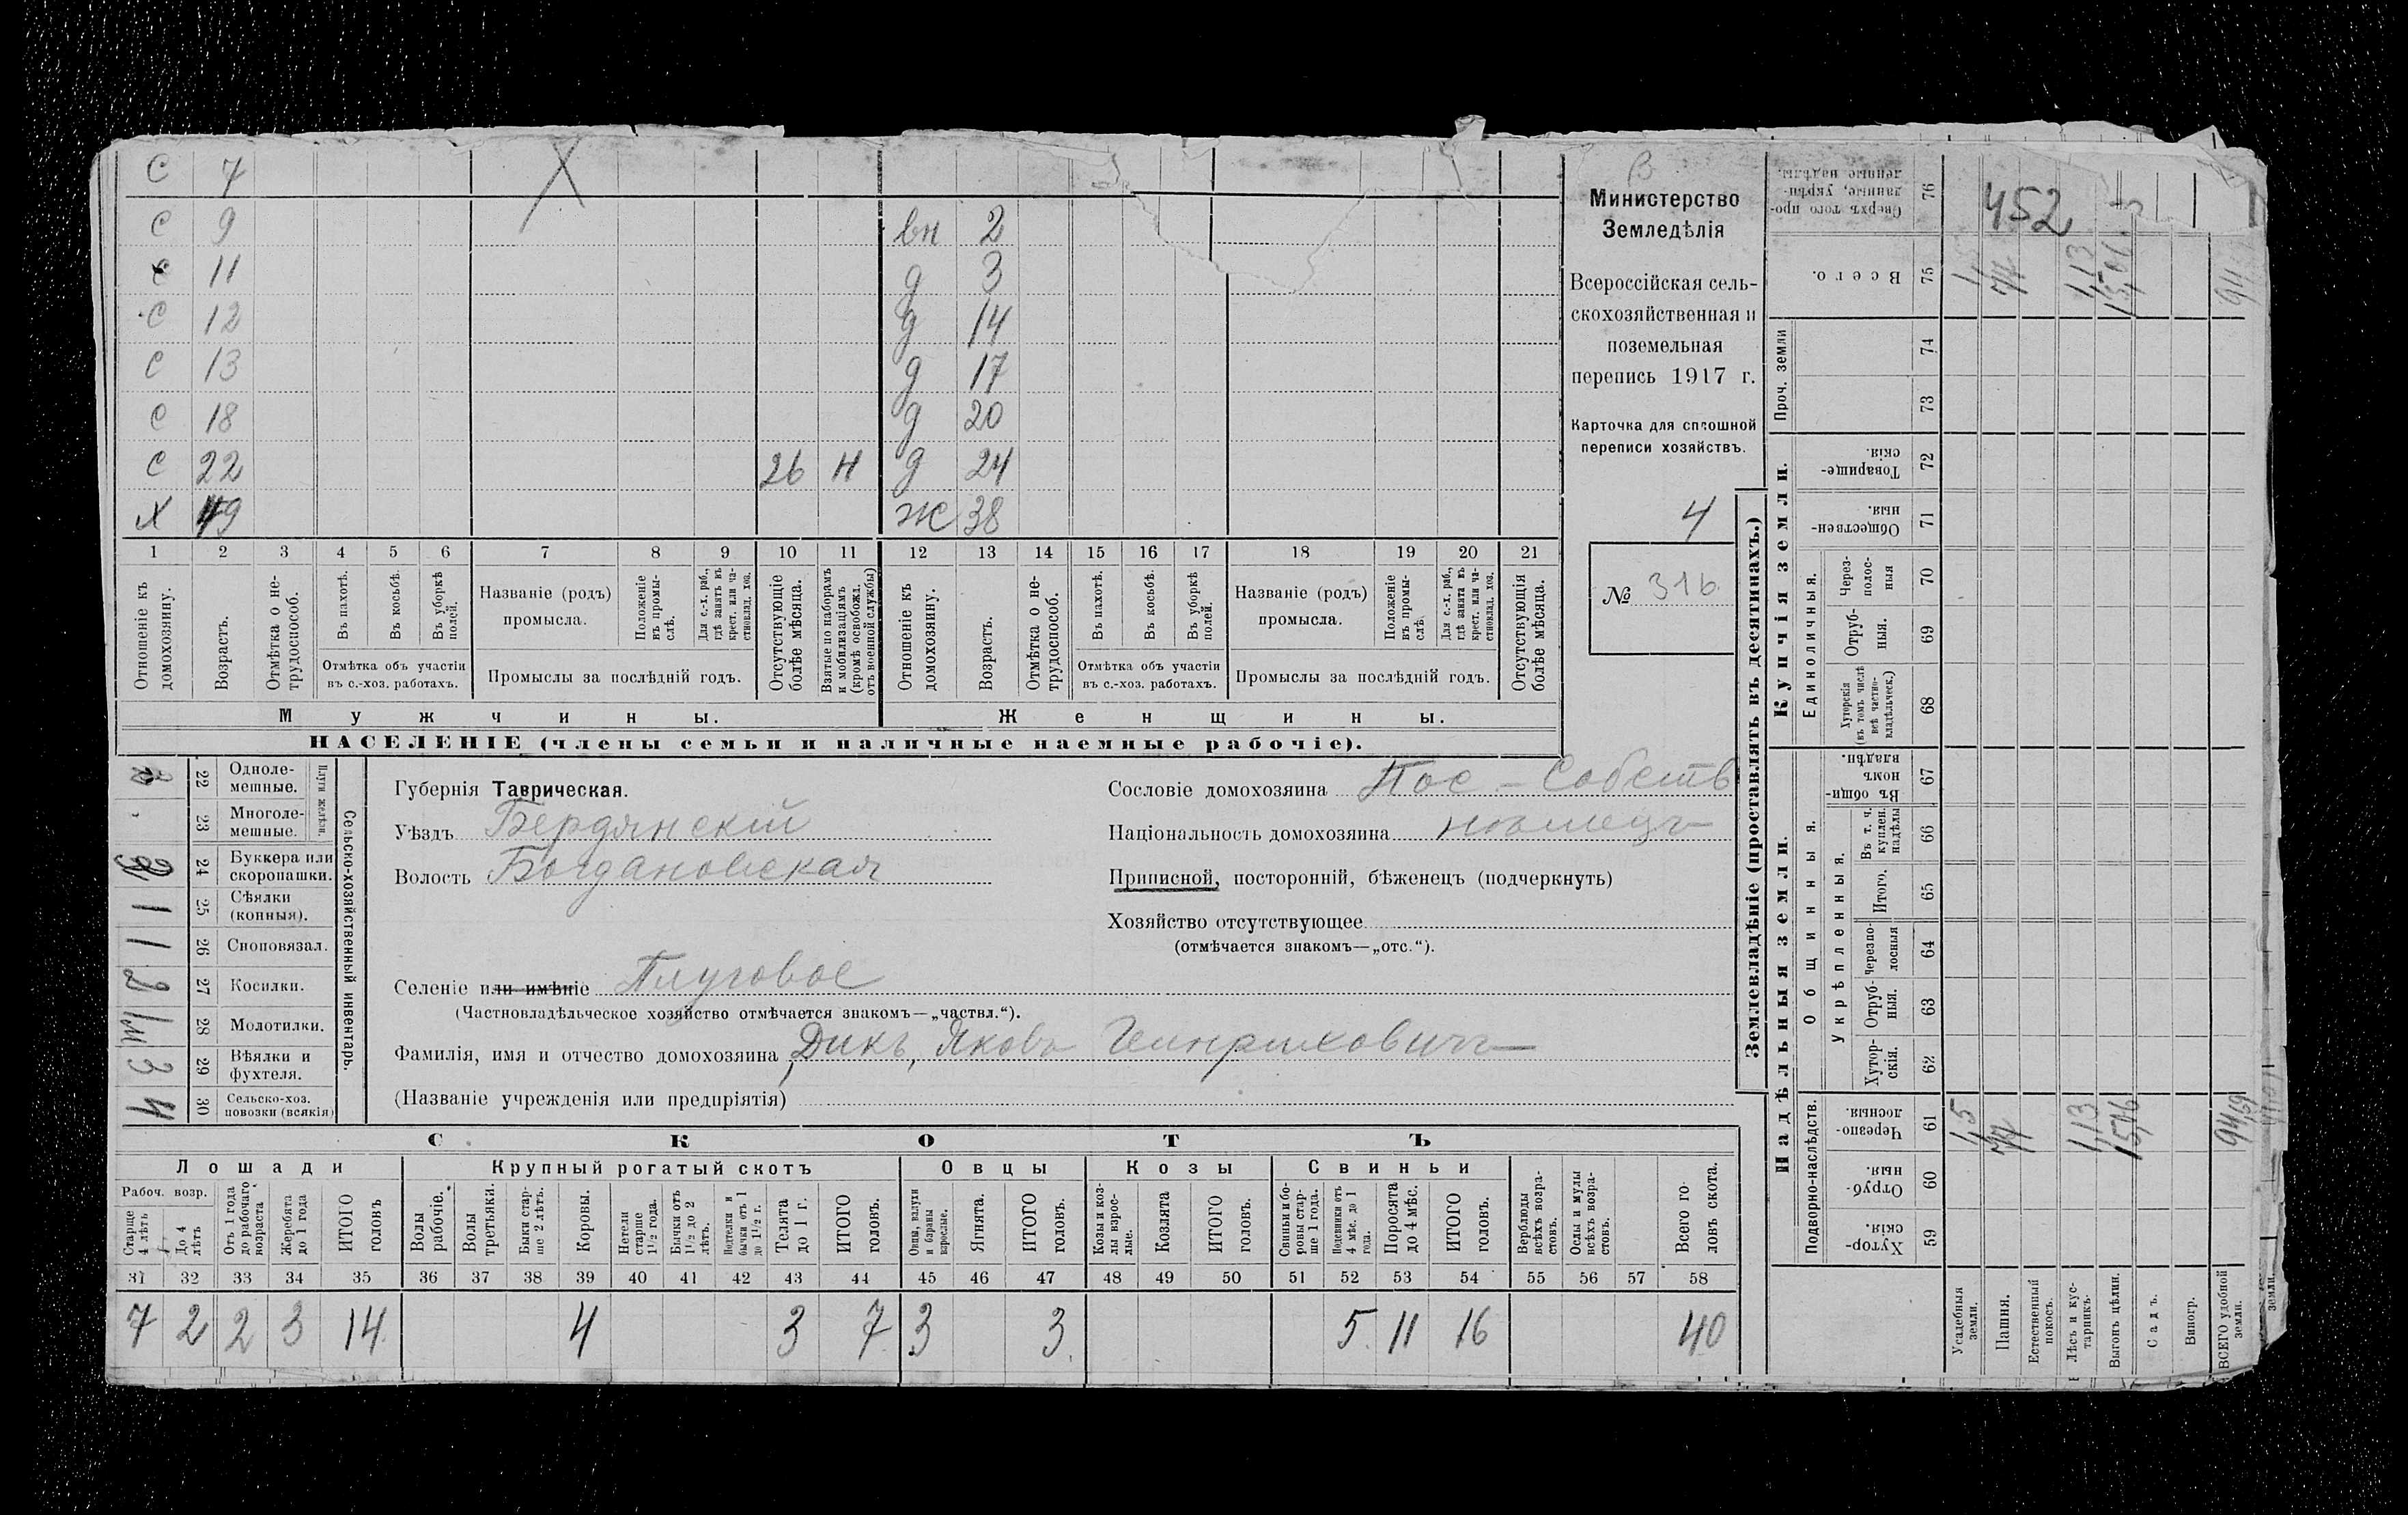 С 7
С 9 вн 2
С 11 д 3
С 12 д 14
С 13 д 17
С 18 д 20
С 22 26 Н д 24
Х 49 ж 38
1 2 3 4 5 6 7 8 9 10 11 12 13 14 15 16 17 18 19 20 21
Отношеніе къ домохозяину.
Возрастъ.
Отмѣтка о не-
трудоспособ.
Въ пахотѣ.
Въ косьбѣ.
Въ уборкѣ
полей.
Отмѣтка объ участіи
въ с.-хоз. работахъ.
Названіе (родъ)
промысла.
Положеніе
въ промы-
слѣ.
Для с.-х. раб.,
гдѣ занятъ въ
крест. или ча-
стновлад. хоз.
Промыслы за послѣдній годъ.
Отсутствующіе
болѣе мѣсяца.
Взятые по наборамъ
и мобилизаціямъ
(кромѣ освобожд.
отъ военной службы)
Отношеніе къ
домохозяину.
Возрастъ.
Отмѣтка о не-
трудоспособ.
Въ пахотѣ.
Въ косьбѣ.
Въ уборкѣ
полей.
Отмѣтка объ участіи
въ с.-хоз. работахъ.
Названіе (родъ)
промысла.
Положеніе
въ промы-
слѣ.
Для с.-х. раб.,
гдѣ занята въ
крест. или ча-
стновлад. хоз.
Промыслы за послѣдній годъ.
Отсутствующія
болѣе мѣсяца.
Мужчины. Женщины.
НАСЕЛЕНІЕ (члены семьи и наличные наемные рабочіе).
В
Министерство
Земледѣлія
Всероссійская сель-
скохозяйственная и
поземельная
перепись 1917 г.
Карточка для сплошной
переписи хозяйствъ.
4
№ 316
22 Одноле-
мешные.
23 Многоле-
мешные.
Плуги желѣзн.
2 24 Буккера или
скоропашки.
1 25 Сѣялки
(конныя).
1 26 Сноповязал.
2 27 Косилки.
28 Молотилки.
3 29 Вѣялки и
фухтеля.
4 30 Сельско-хоз.
повозки (всякія)
Сельско-хозяйственный инвентарь.
Губернія Таврическая.
Уѣздъ Бердянскій
Волость Богдановская
Селеніе или имѣніе Плуговое
(Частновладѣльческое хозяйство отмѣчается знакомъ—„частвл.“).
Фамилія, имя и отчество домохозяина Дикъ, Яковъ Генриховичъ
(Названіе учрежденія или предпріятія)
Сословіе домохозяина Пос - Собств
Національность домохозяина нѣмецъ
Приписной, посторонній, бѣженецъ (подчеркнуть)
Хозяйство отсутствующее
(отмѣчается знакомъ—„отс.“).
СКОТЪ
Лошади Крупный рогатый скотъ Овцы Козы Свиньи
Рабоч. возр.
Старше
4 лѣтъ
До 4
лѣтъ
Отъ 1 года
до рабочаго
возраста
Жеребята
до 1 года
ИТОГО
головъ
Волы
рабочіе.
Волы
третьяки.
Быки стар-
ше 2 лѣтъ.
Коровы.
Нетели
старше
1½ года.
Бычки отъ
1½ до 2
лѣтъ.
Подтелки и
бычки отъ 1
до 1½ г.
Телята
до 1 г.
ИТОГО
головъ.
Овцы, валухи
и бараны
взрослые.
Ягнята.
ИТОГО
головъ.
Козы и коз-
лы взрос-
лые.
Козлята
ИТОГО
головъ.
Свиньи и бо-
ровы стар-
ше 1 года.
Подсвинки отъ
4 мѣс. до 1
года.
Поросята
до 4 мѣс.
ИТОГО
головъ.
Верблюды
всѣхъ возра-
стовъ.
Ослы и мулы
всѣхъ возра-
стовъ.
Всего го-
ловъ скота.
31 32 33 34 35 36 37 38 39 40 41 42 43 44 45 46 47 48 49 50 51 52 53 54 55 56 57 58
7 2 2 3 14 4 3 7 3 3 5 11 16 40
Землевладѣніе (проставлять въ десятинахъ.)
Купчія земли.
Надѣльныя земли.
Сверхъ того про-
данные, укрѣп-
ленные надѣлы. 76 452
Всего. 75
Проч. земли 74 73
Товарище-
скія. 72
Обществен-
ныя. 71
Единоличныя.
Через-
полос-
ныя 70
Отруб-
ныя. 69
Хуторскія
(въ томъ числѣ
всѣ частно-
владѣльческ.) 68
Общинныя.
Въ общи-
номъ
владѣн. 67
Укрѣпленныя.
Въ т. ч.
куплен.
надѣлы 66
Итого. 65
Черезпо-
лосныя 64
Отруб-
ныя. 63
Хутор-
скія. 62
Подворно-наслѣдств.
Черезпо-
лосныя. 61 1,5 77 1,13 94,59
Отруб-
ныя. 60
Хутор-
скія. 59
Усадебныя
земли.
Пашня.
Естественный
покосъ.
Лѣсъ и кус-
тарникъ.
Выгонъ цѣлин.
Садъ.
Виногр.
ВСЕГО удобной
земли.
земли.